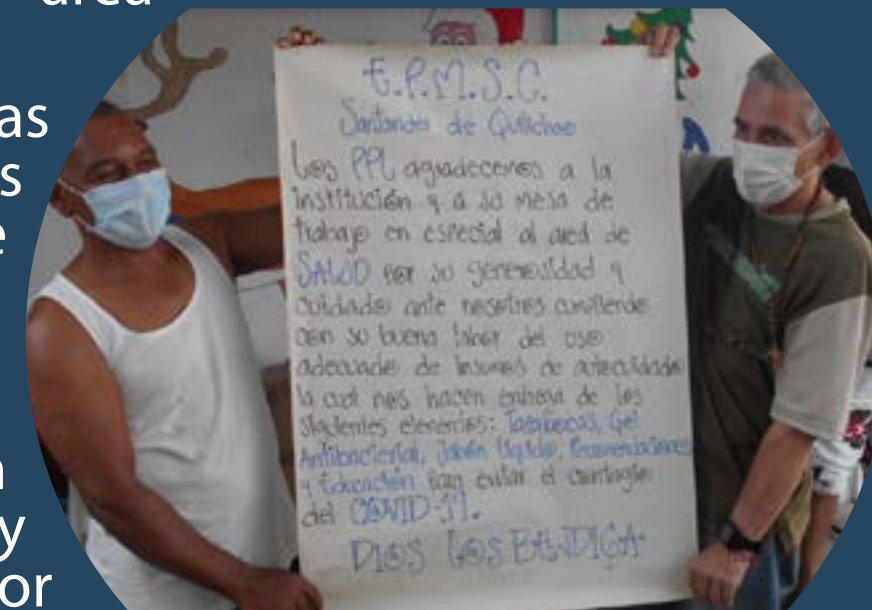 área
as
s
e
n
y
or
E.P.M.S.C.
Santander de Quilichao
Los PPL agradecemos a la
institución y a su mesa de
trabajo en especial al area de
SALUD por su generosidad y
cuidado ante nosotros cumpliendo
con su buena labor del uso
adecuado de insumos de autocuidado
la cual nos hacen entrega de los
siguientes elementos: Tapabocas, Gel
Antibacterial, Jabón Liquido, Recomendaciones
y Educación para evitar el contagio
del COVID-19.
DIOS LOS BENDIGA